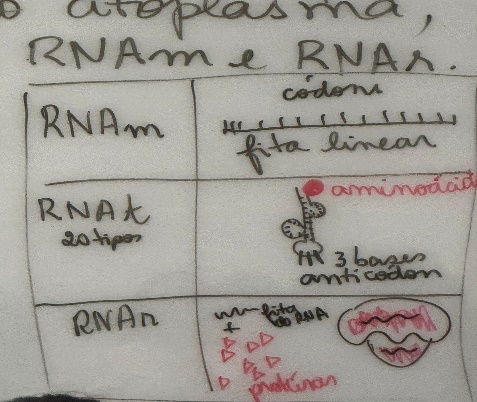 o citoplasma,
RNAm e RNAr.
RNAm
códons
fita linear
RNAt
20 tipos
aminoácid
3 bases
anticodon
RNAr
fita
RNA
+
proteínas